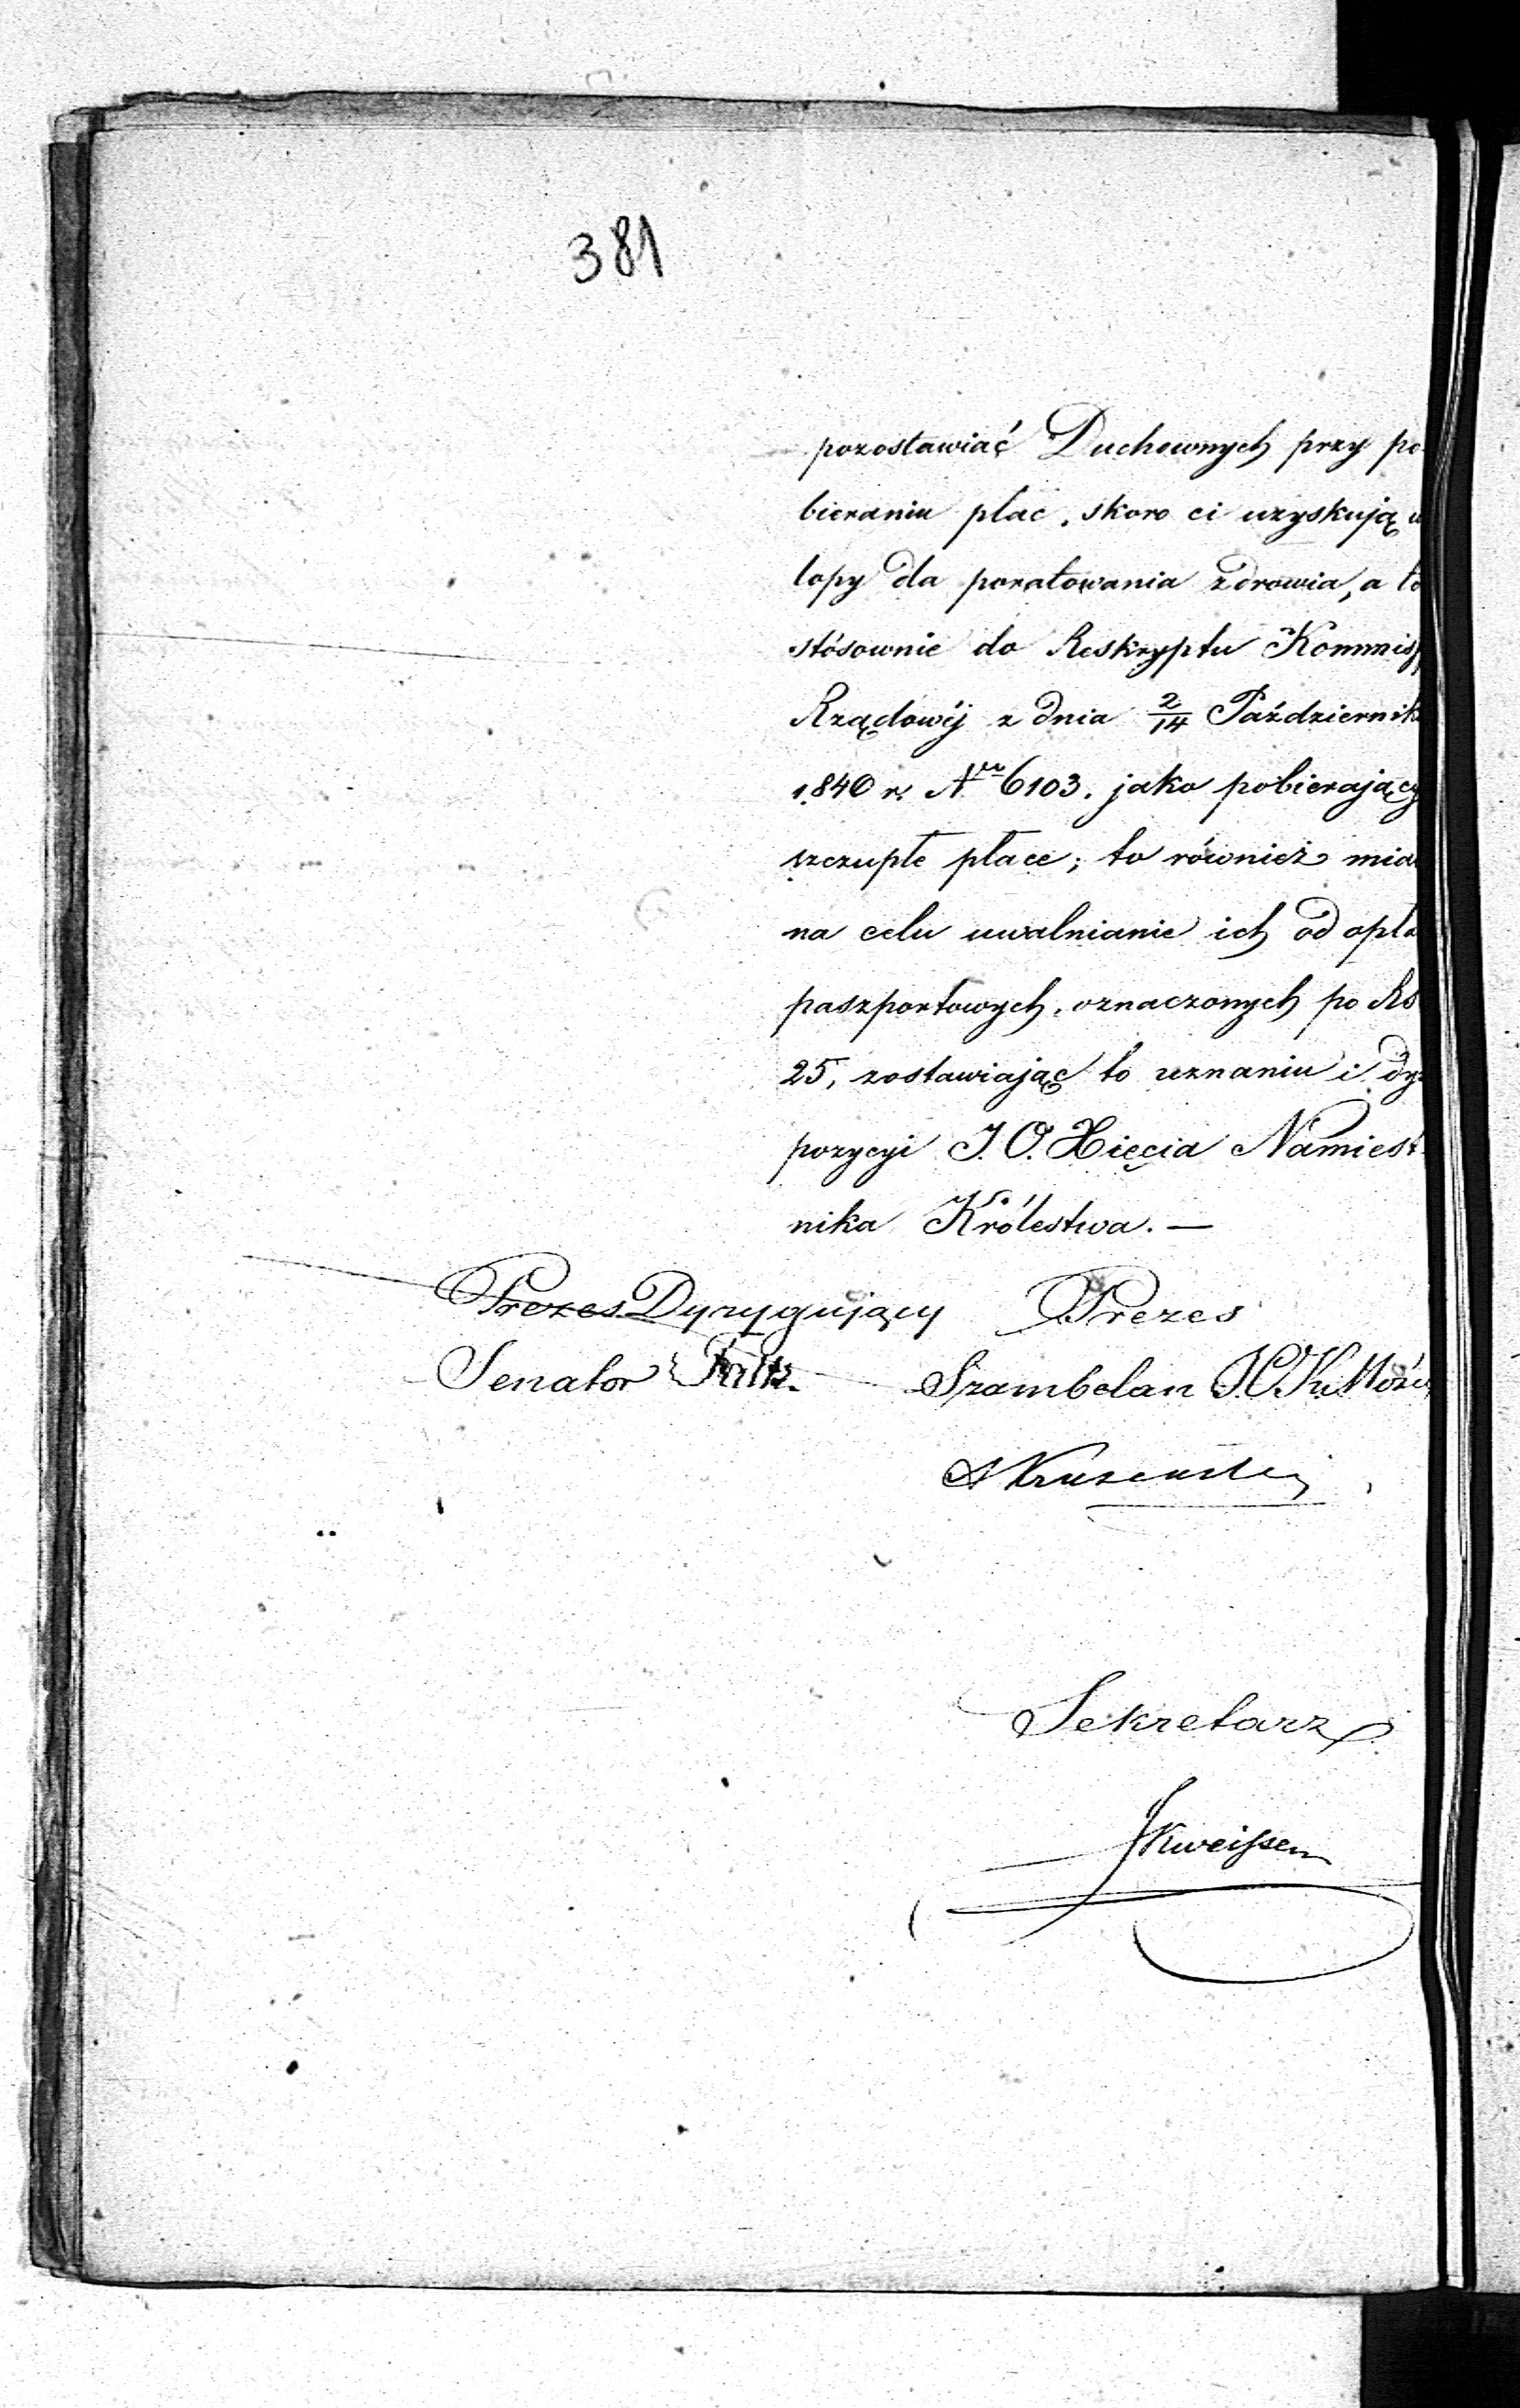 381
pozostawiać Duchownych przy po-
bieraniu płac, skoro ci uzyskują u
lopy dla poratowania zdrowia, a to
stósownie do Reskryptu Kommis
Rządowéj z dnia 2/14 Październik
1840 r. Nro 6103. jako pobierający
szczupłe płace; to również mia
na celu uwalnianie ich od opła
paszportowych, oznaczonych po Rs
25, zostawiając to uznaniu i dys
pozycyi J. O. Xięcia Namiest-
nika Królestwa. —
Prezes Dyrygujący Prezes
Senator Szambelan
Sekretarz